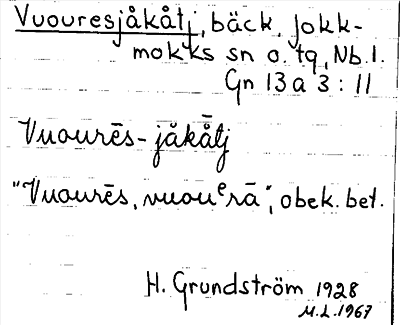 Vuouresjåkåtj, bäck, Jokk-
mokks sn o. tg, Nb. l.
Gn 13 a 3 : 11
Vuourēs-jåkā̊tj
"Vuourēs, vuouᵉrā", obek. bet.
H. Grundström 1928
M.L. 1967